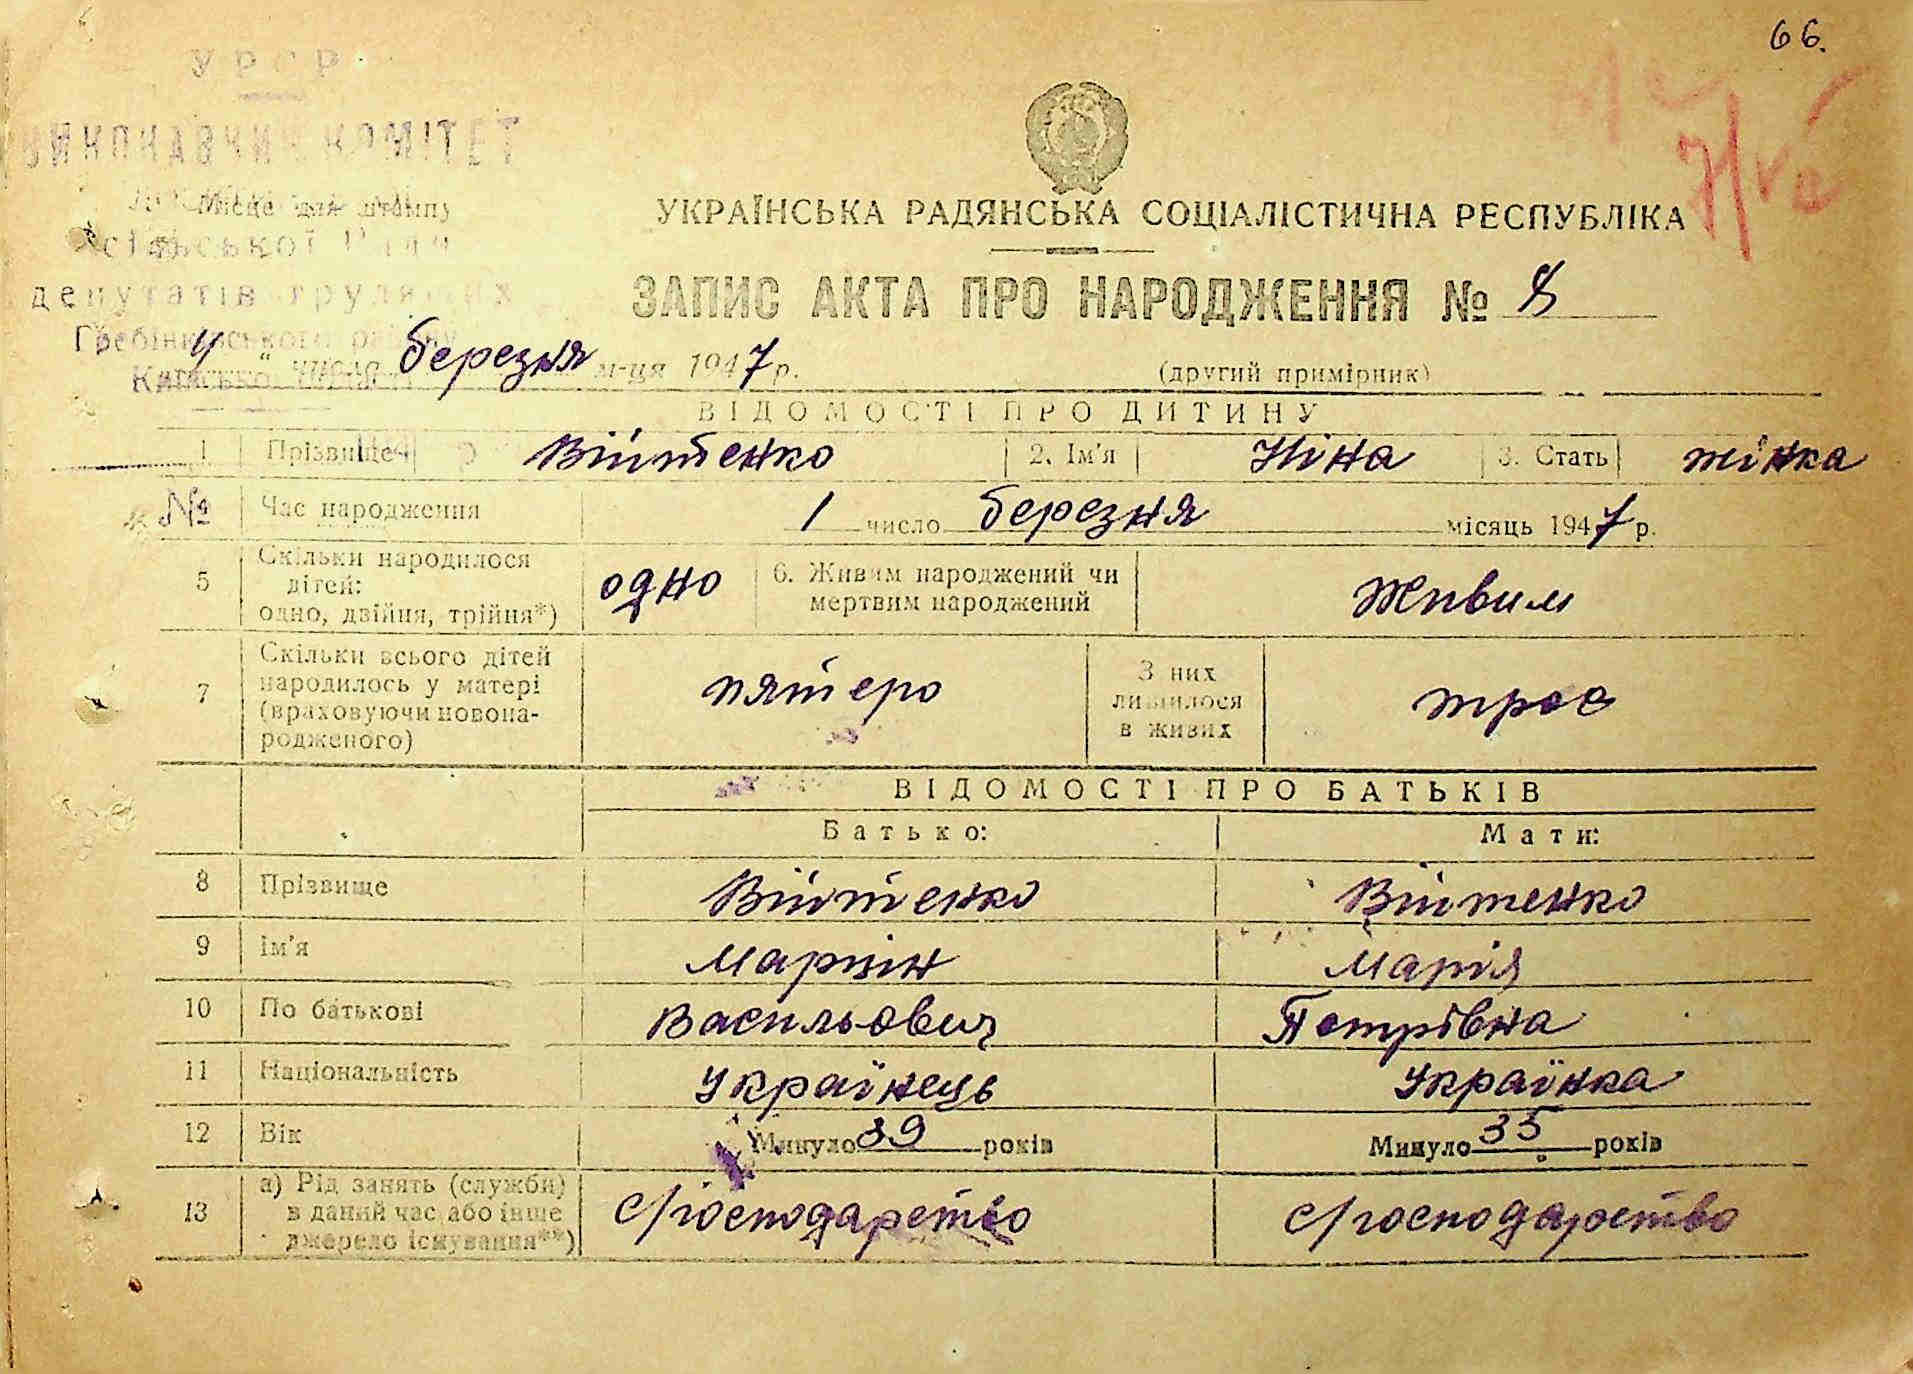 66.
УРСР
ВИКОНАВЧИЙ КОМІТЕТ
Місце для штампу
сільської Ради
депутатів трудящих
Гребінківського району
УКРАЇНСЬКА РАДЯНСЬКА СОЦІАЛІСТИЧНА РЕСПУБЛІКА
ЗАПИС АКТА ПРО НАРОДЖЕННЯ № 8
4 " числа березня м-ця 1947 р. (другий примірник)
ВІДОМОСТІ ПРО ДИТИНУ
1 Прізвище Війтенко 2. Ім'я Ніна 3. Стать жінка
№ Час народження 1 число березня місяць 1947 р.
5 Скільки народилося дітей: одно, двійня, трійня*) одно 6. Живим народжений чи мертвим народжений Живим
7 Скільки всього дітей народилось у матері (враховуючи новонародженого) пятеро З них лишилося в живих троє
ВІДОМОСТІ ПРО БАТЬКІВ
Батько: Мати:
8 Прізвище Війтенко Війтенко
9 Ім'я Марпін Марія
10 По батькові Васильович Петрівна
11 Національність Українець Українка
12 Вік Минуло 39 років Минуло 35 років
13 а) Рід занять (служби) в даний час або інше джерело існування**) с/господарство с/господарство